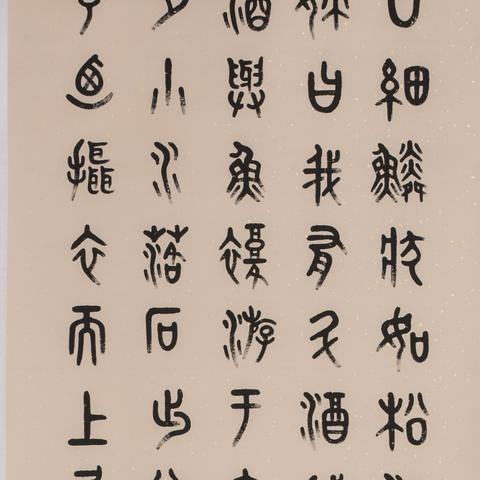 口細鱗狀如松
婦曰我有斗酒
酒與魚復游于
月小水落石出
予迺攝衣而上